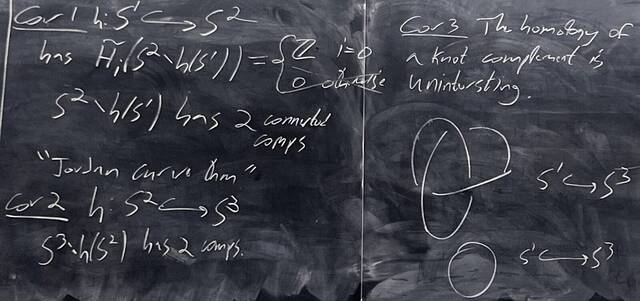 Cor 1 h: S¹ ↪ S²
has H̃ᵢ(S²∖h(S¹)) = { ℤ i=0
0 otherwise
S²∖h(S¹) has 2 connected
comps
"Jordan curve thm"
Cor 2 h: S² ↪ S³
S³∖h(S²) has 2 comps.
Cor 3 The homology of
a knot complement is
uninteresting.
S¹ ↪ S³
S¹ ↪ S³